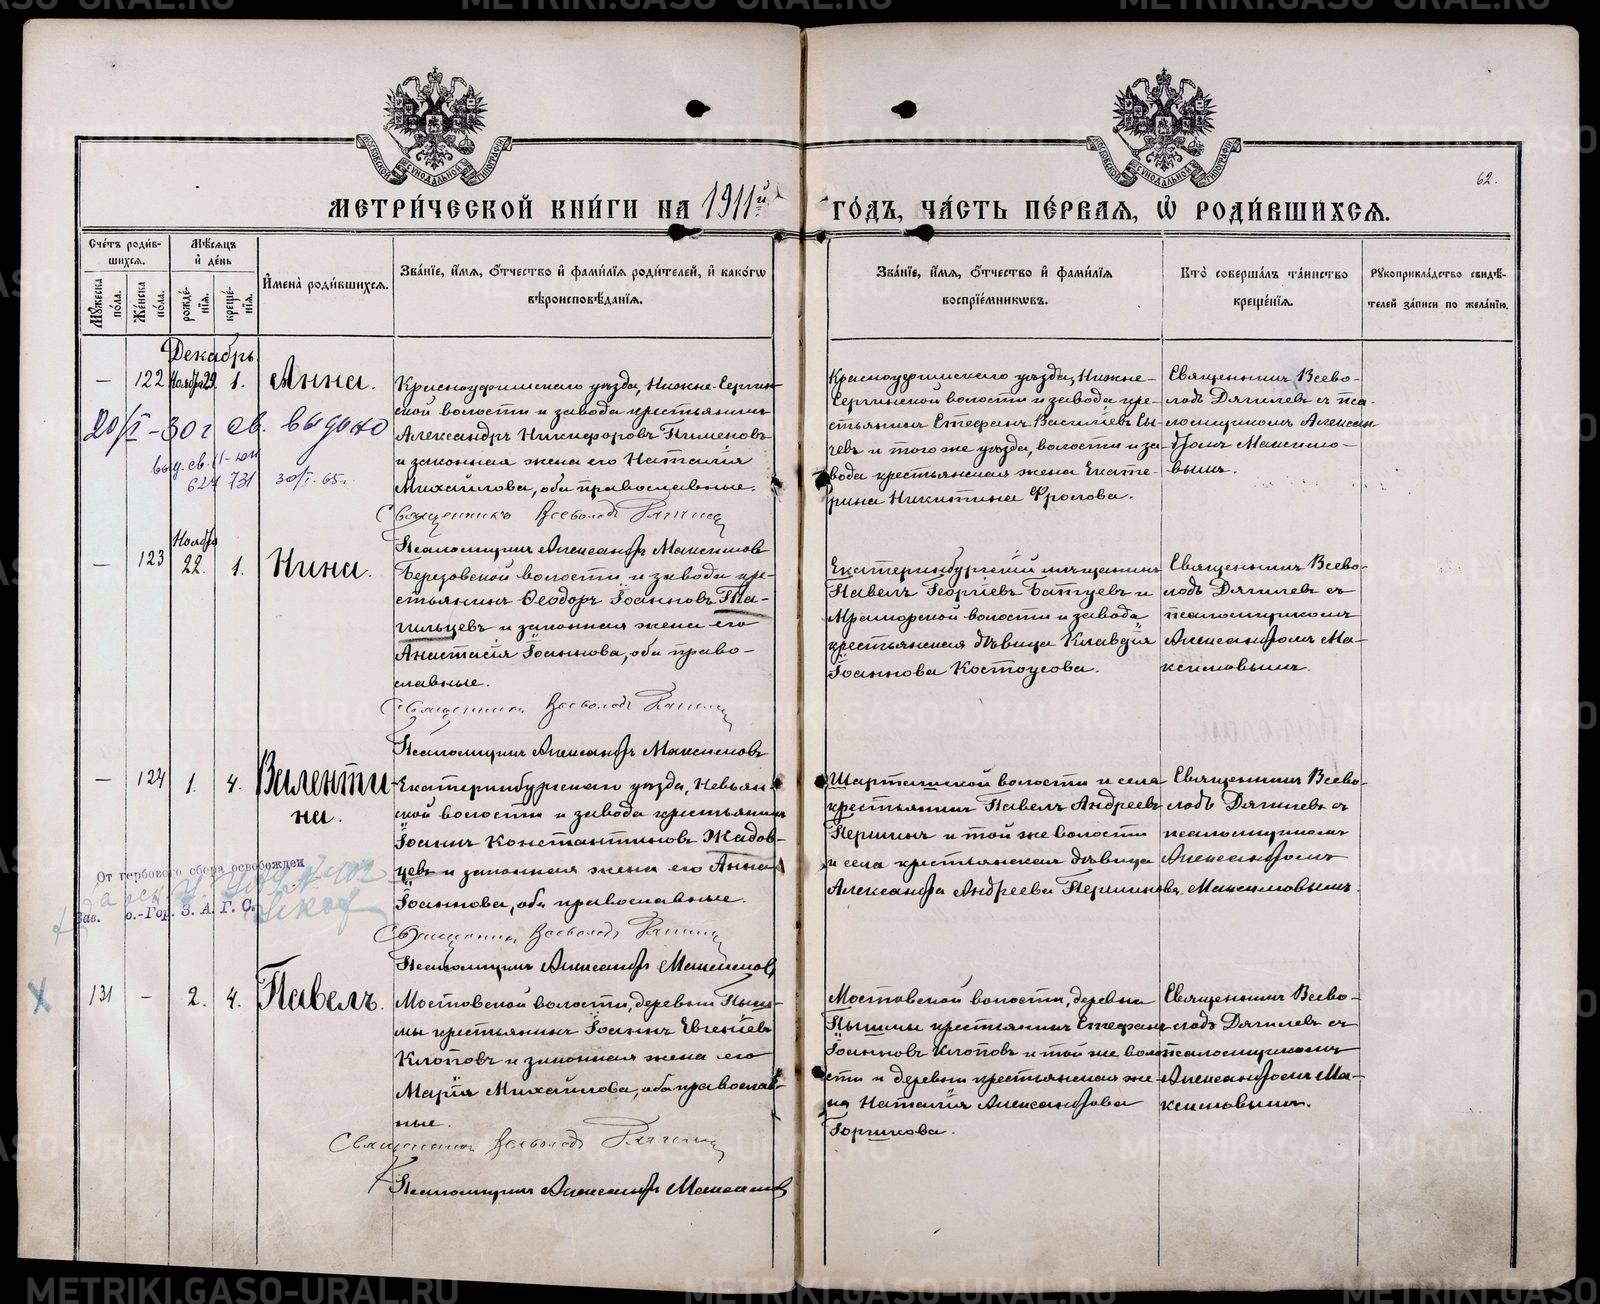 МЕТРИ́ЧЕСКОЙ КНИ́ГИ НА 1911й
ГО́ДЪ, ЧА́СТЬ ПЕ́РВАЯ, Ѡ҆ РОДИ́ВШИХСѦ.
62.
Сче́тъ роди́в-
шихсѧ.
Мꙋ́жеска по́ла.
Же́нска по́ла.
Мѣ́сѧцъ
и҆ де́нь
рожде́нїѧ.
креще́нїѧ.
И҆мена̀ роди́вшихсѧ.
Зва́нїе, и҆́мѧ, ѻ҆́тчество и҆ фами́лїѧ роди́телей, и҆ како́гѡ
вѣроисповѣ́данїѧ.
Зва́нїе, и҆́мѧ, ѻ҆́тчество и҆ фами́лїѧ
воспрїе́мникѡвъ.
Кто̀ соверша́лъ та́инство
креще́нїѧ.
Рꙋкоприкла́дство свидѣ́-
телей за́писи по жела́нїю.
Декабрь
— 122 Ноябр. 29. 1. Анна.
Красноуфимскаго уѣзда, Нижне-Сергин-
ской волости и завода крестьянинъ
Александръ Никифоровъ Пименовъ
и законная жена его Наталія
Михайлова, оба православные.
Священникъ Всеволодъ Дягилевъ
Псаломщикъ Александръ Максимовъ
Красноуфимскаго уѣзда, Нижне-
Сергинской волости и завода кре-
стьянинъ Стефанъ Васильевъ Сы-
чевъ и того же уѣзда, волости и за-
вода крестьянская жена Екате-
рина Никитина Фролова.
Священникъ Всево-
лодъ Дягилевъ съ пса-
ломщикомъ Алексан-
дромъ Максимо-
вымъ.
20/I-30 г св. выдано
выд. св. II-юл
624 731 30/I. 65 г.
— 123 Ноябр. 22. 1. Нина.
Березовской волости и завода кре-
стьянинъ Ѳеодоръ Іоанновъ Та-
гильцевъ и законная жена его
Анастасія Іоаннова, оба право-
славные.
Священникъ Всеволодъ Дягилевъ
Псаломщикъ Александръ Максимовъ
Екатеринбургскій мѣщанинъ
Павелъ Георгіевъ Батуевъ и
Мраморской волости и завода
крестьянская дѣвица Клавдія
Іоаннова Костоусова.
Священникъ Всево-
лодъ Дягилевъ съ
псаломщикомъ
Александромъ Ма-
ксимовымъ.
— 124 1. 4. Валенти
на.
Екатеринбургскаго уѣзда, Невьян-
ской волости и завода крестьянинъ
Іоаннъ Константиновъ Жадов-
цевъ и законная жена его Анна
Іоаннова, оба православные.
Священникъ Всеволодъ Дягилевъ
Псаломщикъ Александръ Максимовъ
Шарташской волости и села
крестьянинъ Павелъ Андреевъ
Першинъ и той же волости
и села крестьянская дѣвица
Александра Андреева Першинова.
Священникъ Всево-
лодъ Дягилевъ съ
псаломщикомъ
Александромъ
Максимовымъ.
От гербового сбора освобожден
Зав. о.-Гор. З. А. Г. С.
X
131 — 2. 4. Павелъ.
Мостовской волости, деревни Пыш-
мы крестьянинъ Іоаннъ Евгеніевъ
Клоповъ и законная жена его
Марія Михайлова, оба православ-
ные.
Священникъ Всеволодъ Дягилевъ
Псаломщикъ Александръ Максимовъ
Мостовской волости, деревни
Пышмы крестьянинъ Стефанъ
Іоанновъ Клоповъ и той же воло-
сти и деревни крестьянская же-
на Наталія Александрова
Горшкова.
Священникъ Всево-
лодъ Дягилевъ съ
псаломщикомъ
Александромъ Ма-
ксимовымъ.
METRIKI.GASO-URAL.RU